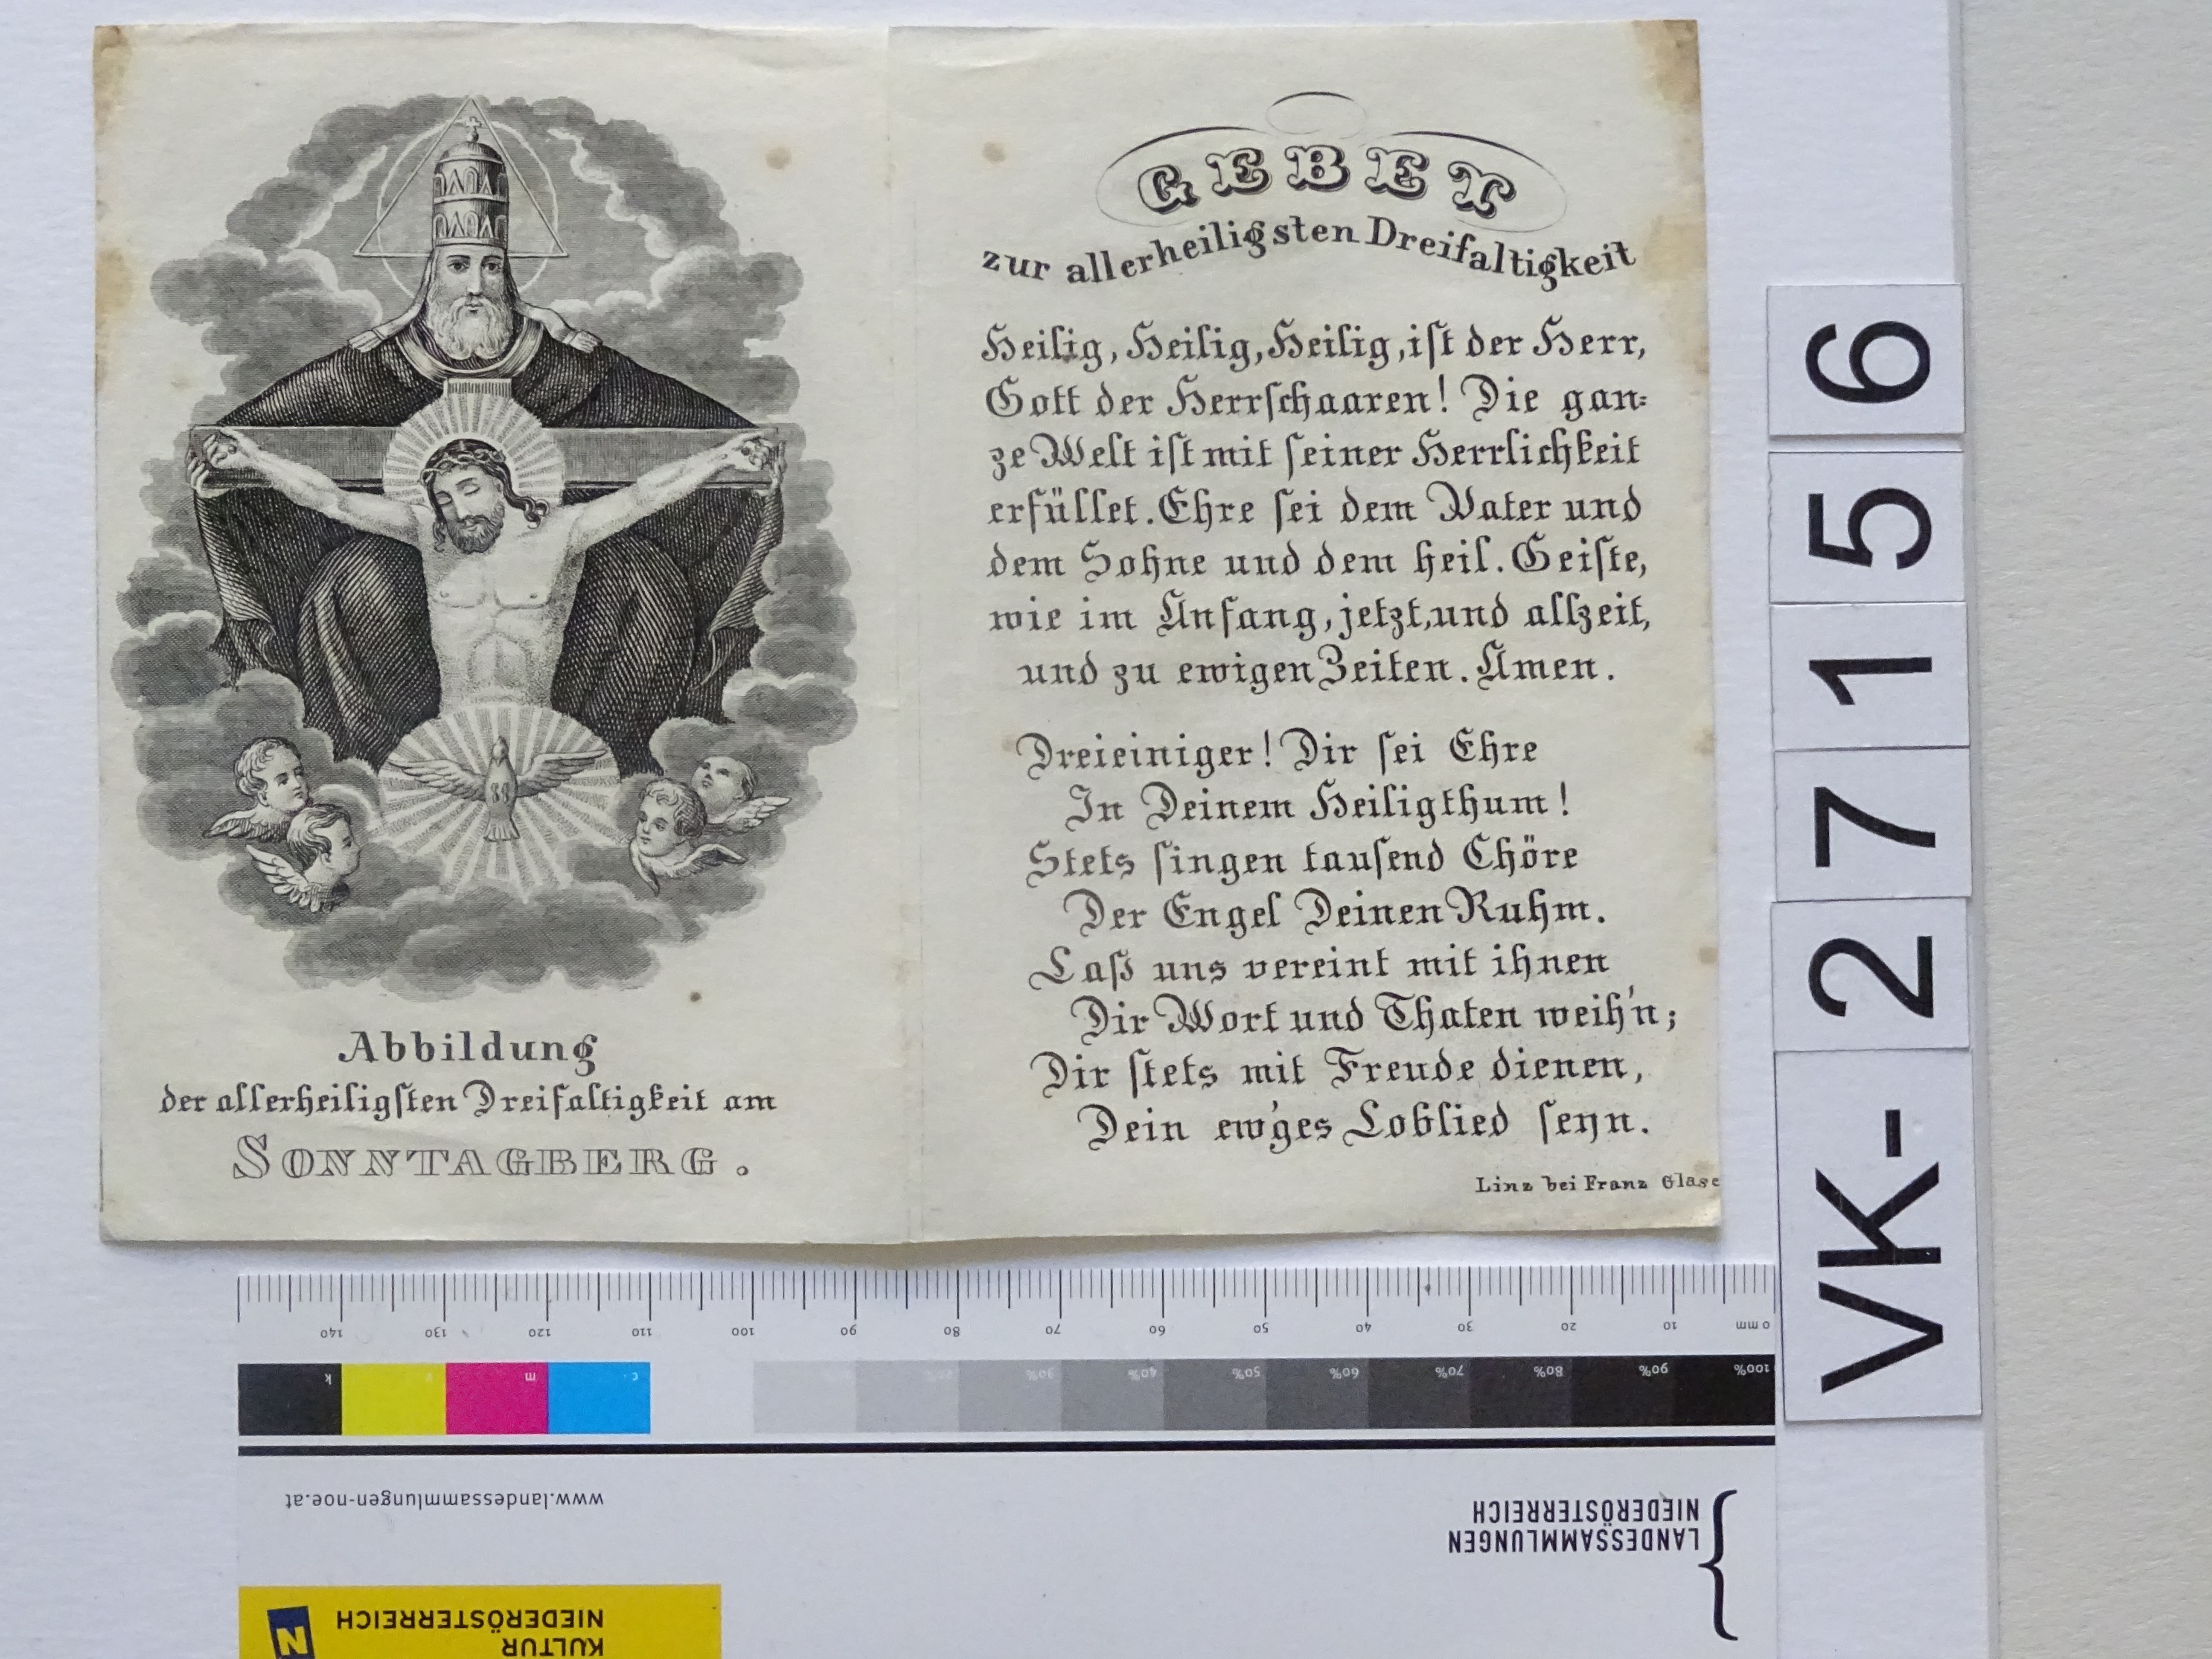 Abbildung
der allerheiligſten Dreifaltigkeit am
SONNTAGBERG.
GEBET
zur allerheiligsten Dreifaltigkeit
Heilig, Heilig, Heilig, iſt der Herr,
Gott der Herrſchaaren! Die gan=
ze Welt iſt mit ſeiner Herrlichkeit
erfüllet. Ehre ſei dem Vater und
dem Sohne und dem heil. Geiſte,
wie im Anfang, jetzt, und allzeit,
und zu ewigen Zeiten. Amen.
Dreieiniger! Dir ſei Ehre
In Deinem Heiligthum!
Stets ſingen tauſend Chöre
Der Engel Deinen Ruhm.
Laß uns vereint mit ihnen
Dir Wort und Thaten weih'n;
Dir ſtets mit Freude dienen,
Dein ew'ges Loblied ſeyn.
Linz bei Franz Glase
VK-27156
140 130 120 110 100 90 80 70 60 50 40 30 20 10 0 mm
k y m c 20% 30% 40% 50% 60% 70% 80% 90% 100%
www.landessammlungen-noe.at
LANDESSAMMLUNGEN
NIEDERÖSTERREICH
KULTUR
NIEDERÖSTERREICH
N